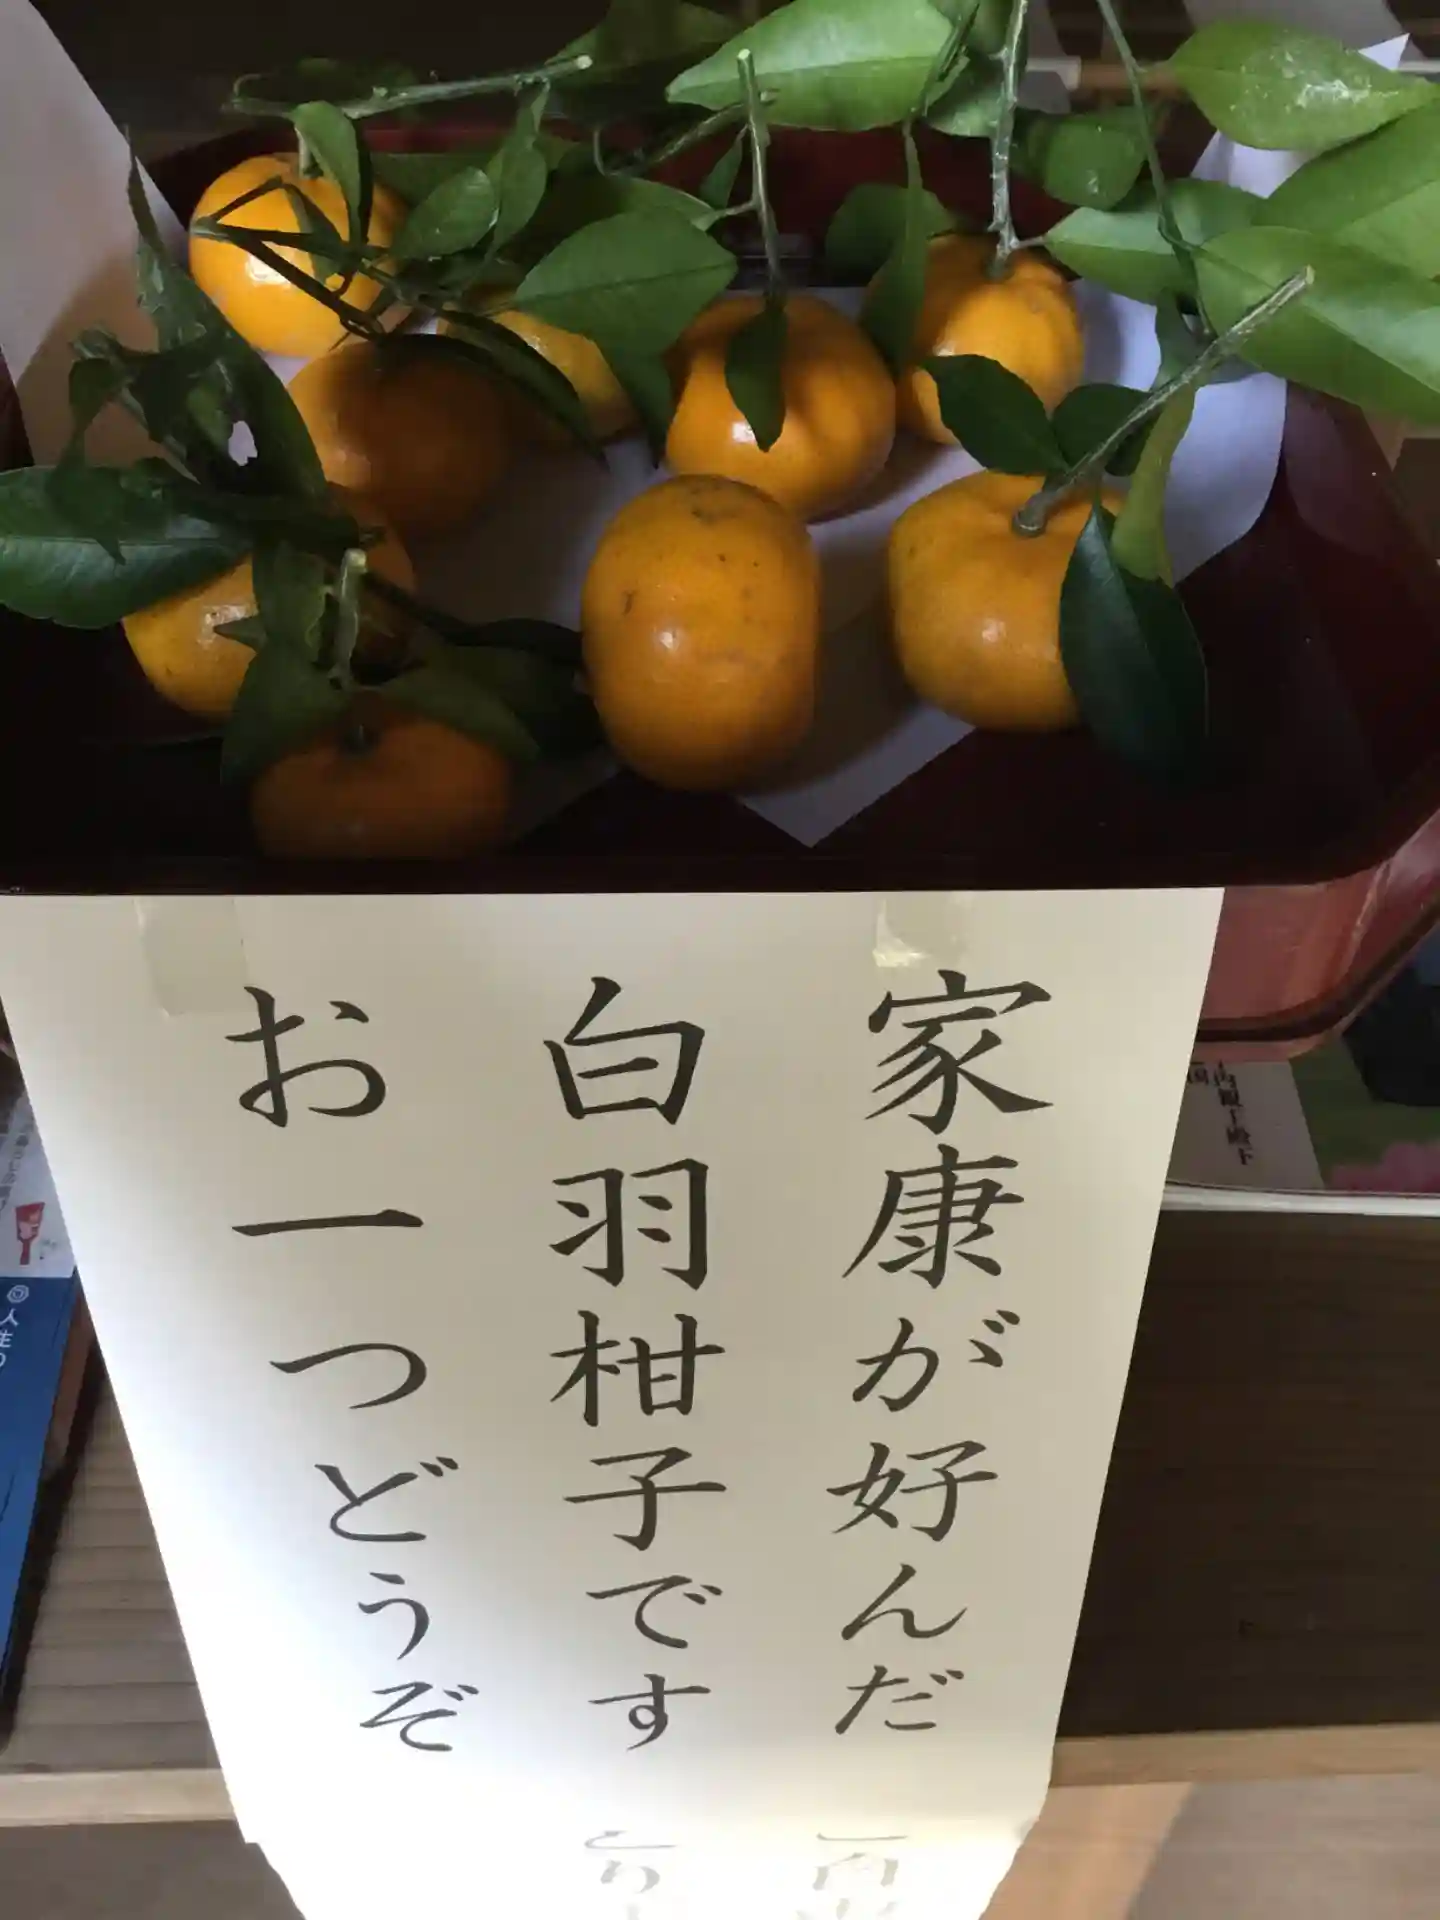 家康が好んだ
白羽柑子です
お一つどうぞ
人生の